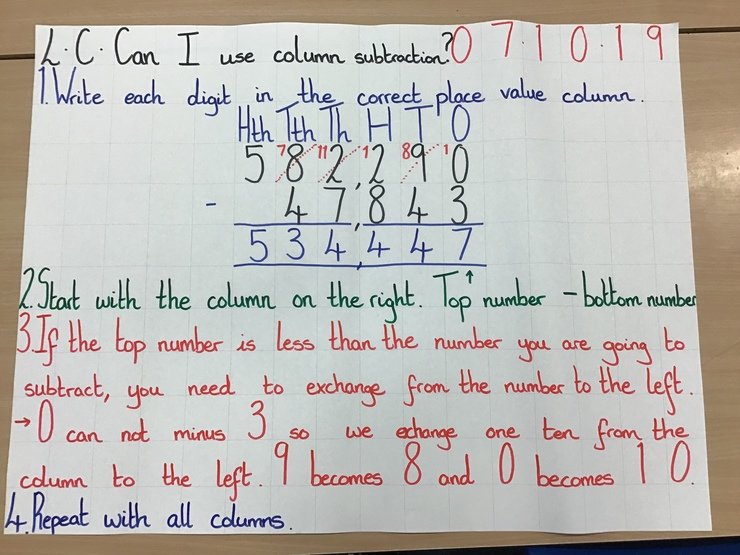 L.C. Can I use column subtraction? 07.10.19
1. Write each digit in the correct place value column.
Hth Tth Th H T O
5 ⁷8 ¹¹2,¹2 ⁸9 ¹0
- 4 7,8 4 3
5 3 4,4 4 7
2. Start with the column on the right. Top number - bottom number
↑
3. If the top number is less than the number you are going to
subtract, you need to exchange from the number to the left.
→ 0 can not minus 3 so we echange one ten from the
column to the left. 9 becomes 8 and 0 becomes 10.
4. Repeat with all columns.